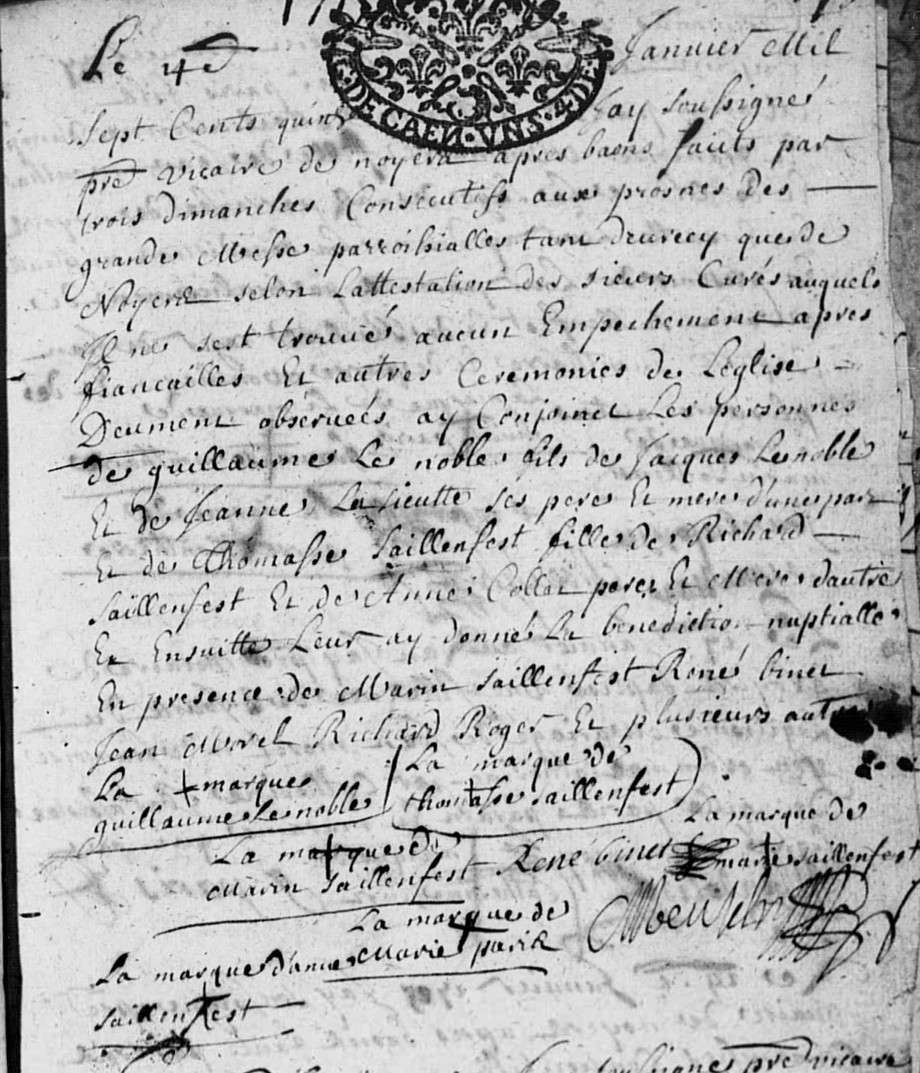 DE CAEN. VNS. 4. DE
Le 4e Janvier Mil
Sept Cents quinz Jay soussigné
pre vicaire de noyers apres bans faits par
trois dimanches Consecutifs aux prosnes des
grande Messe parroissialles tant deurecy que de
Noyers selon Lattestation des sieurs Curés auquels
Il ne sest trouvé aucun Empechement apres
fiancailles Et autres Ceremonies de Leglise
Deument observeés ay Conjoinct Les personnes
de guillaume Le noble fils de Jacques Lenoble
Et de Jeanne ses pere Et mere d'une part
Et de Thomasse Saillenfest fille de Richard
Saillenfest Et de Anne Collet peres Et Mere dautre
Et Ensuitte Leur ay donné La benediction nuptialle
En presence de Marin Saillenfest René binet
Jean Morel Richard Roger Et plusieurs autres
La marque
guillaume Lenoble
La marque de
thomasse saillenfest
La marque de
Marin Saillenfest
René binet
La marque de
marie saillenfest
La marque de
Marie paris
La marque danne
saillenfest
soussigné pre vicaire